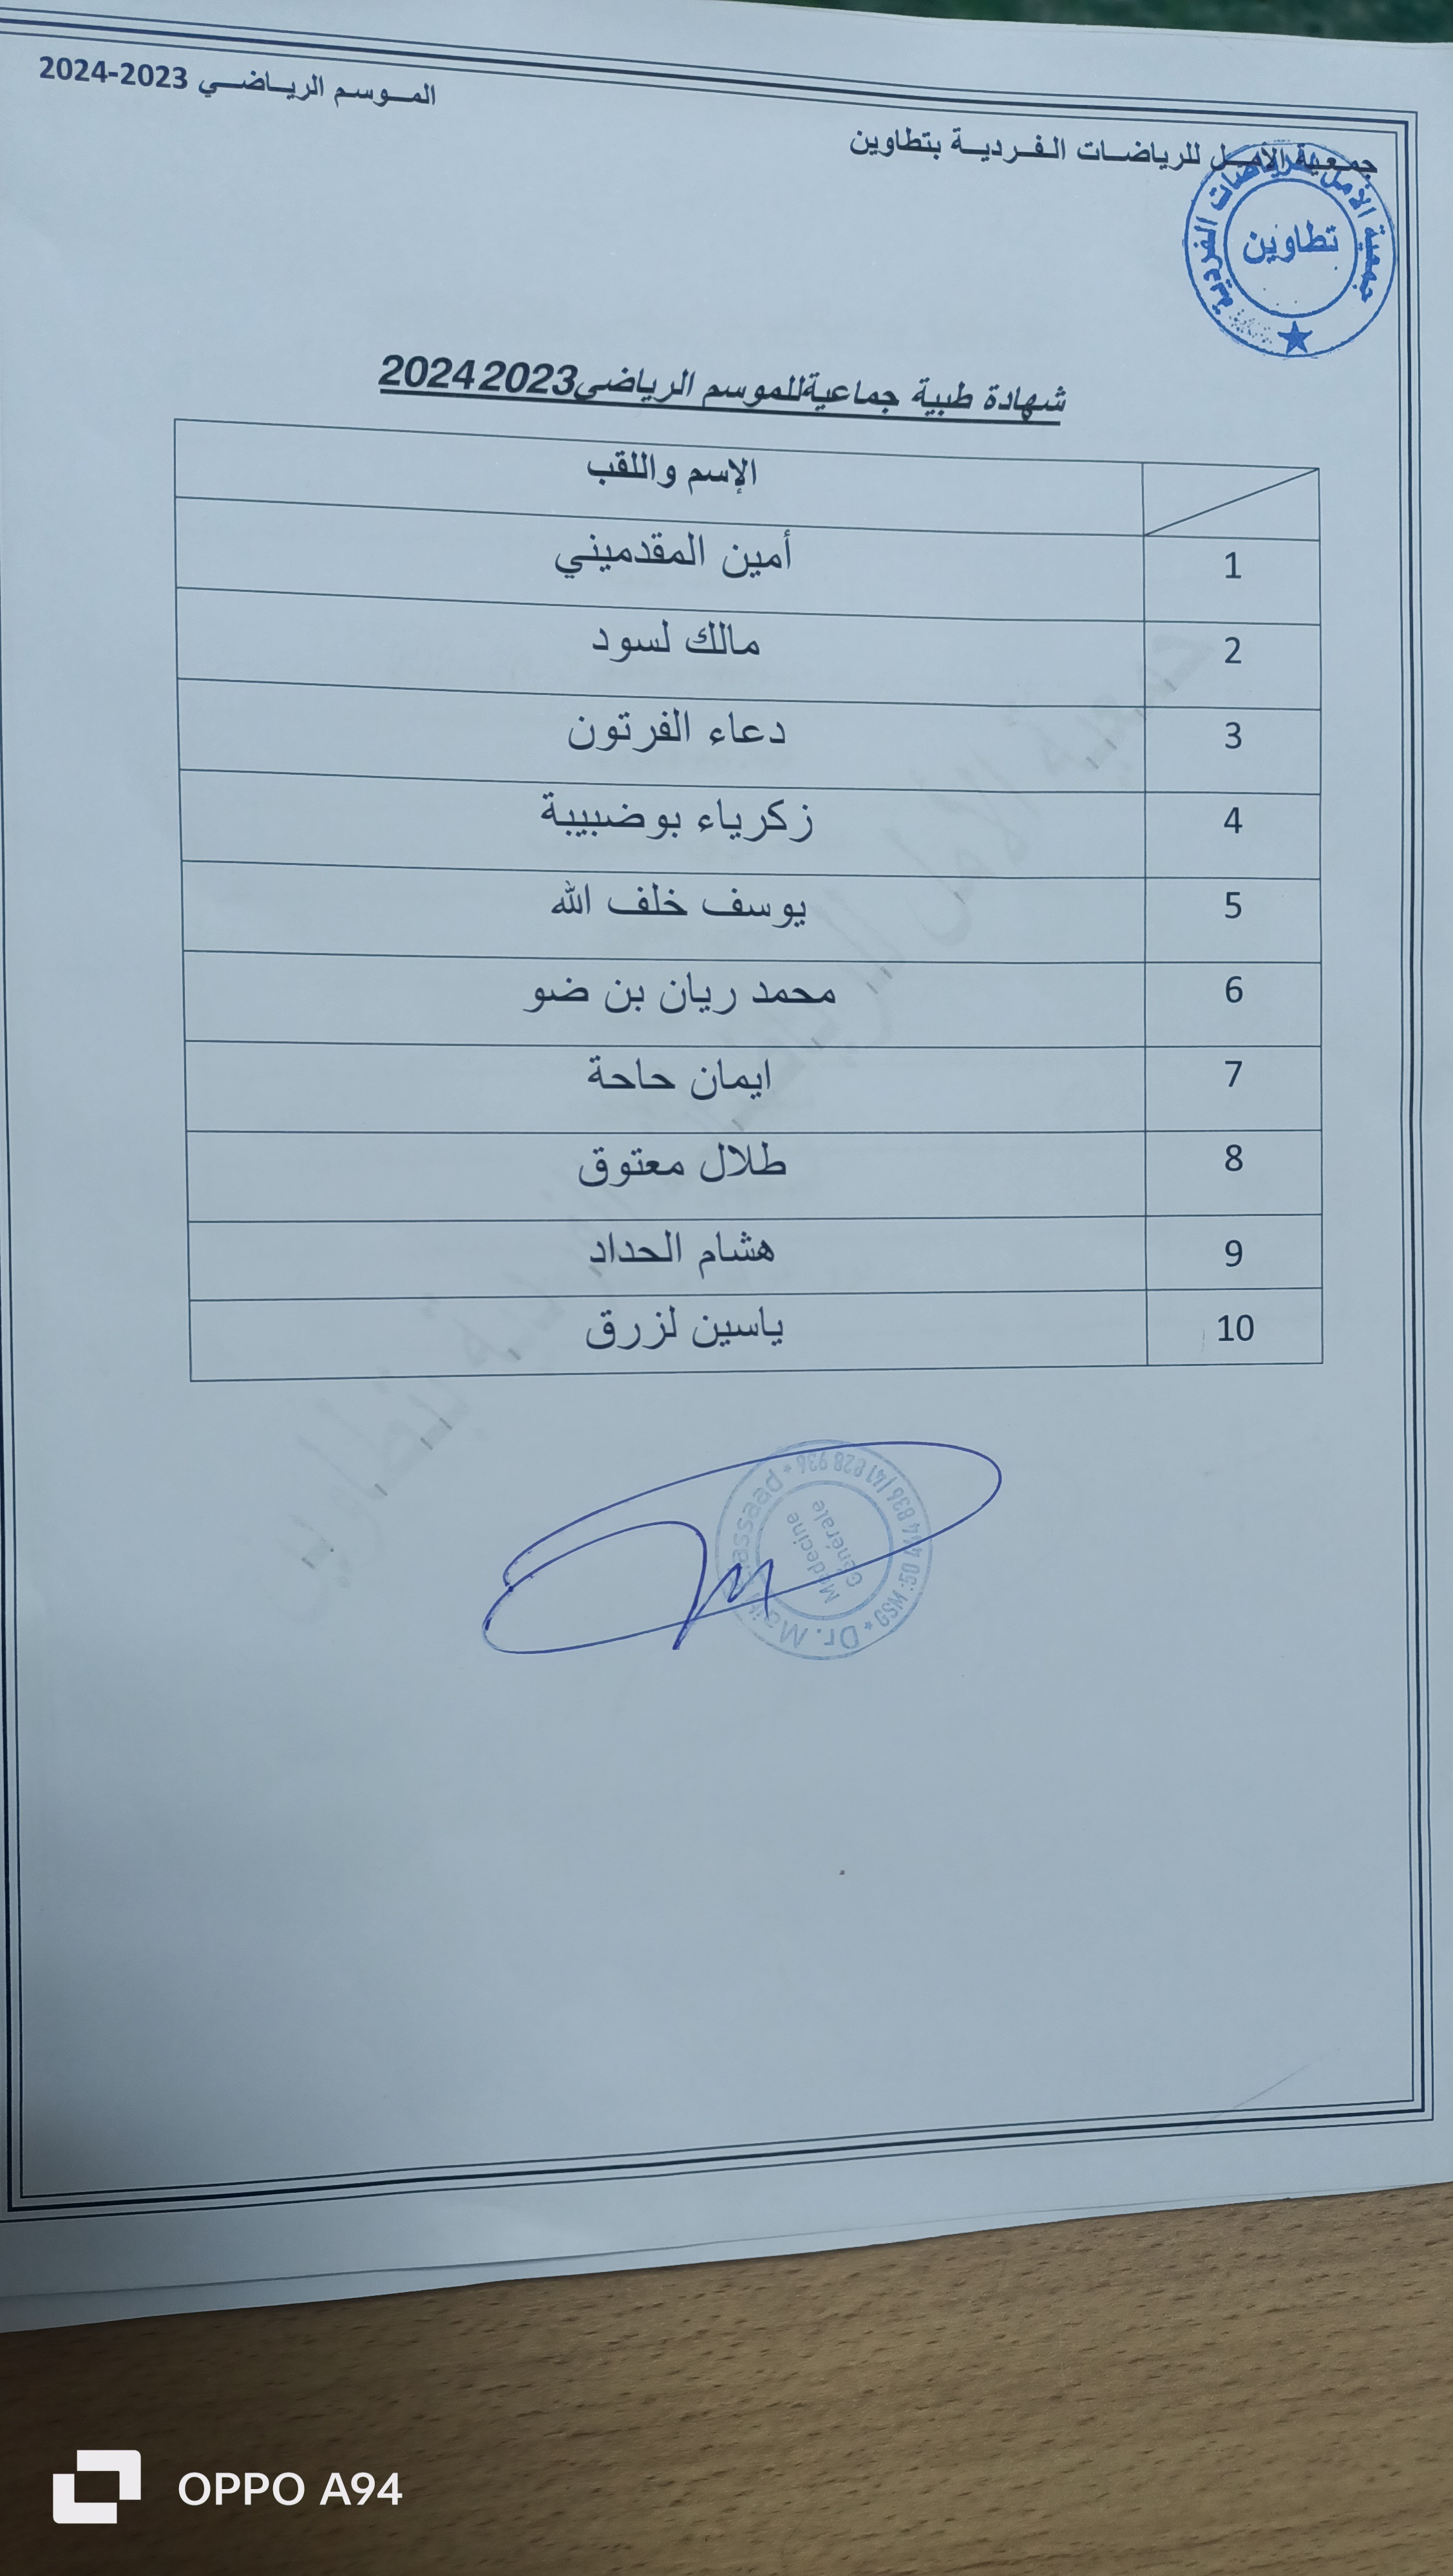 الموسم الرياضي 2023-2024
جمعية الأمل للرياضات الفردية بتطاوين
جمعية الأمل للرياضات الفردية
تطاوين
شهادة طبية جماعيةللموسم الرياضي20232024
الإسم واللقب
1 أمين المقدميني
2 مالك لسود
3 دعاء الفرتون
4 زكرياء بوضبيبة
5 يوسف خلف الله
6 محمد ريان بن ضو
7 ايمان حاحة
8 طلال معتوق
9 هشام الحداد
10 ياسين لزرق
جمعية الأمل للرياضات الفردية بتطاوين
Dr.
Médecine
Générale
OPPO A94